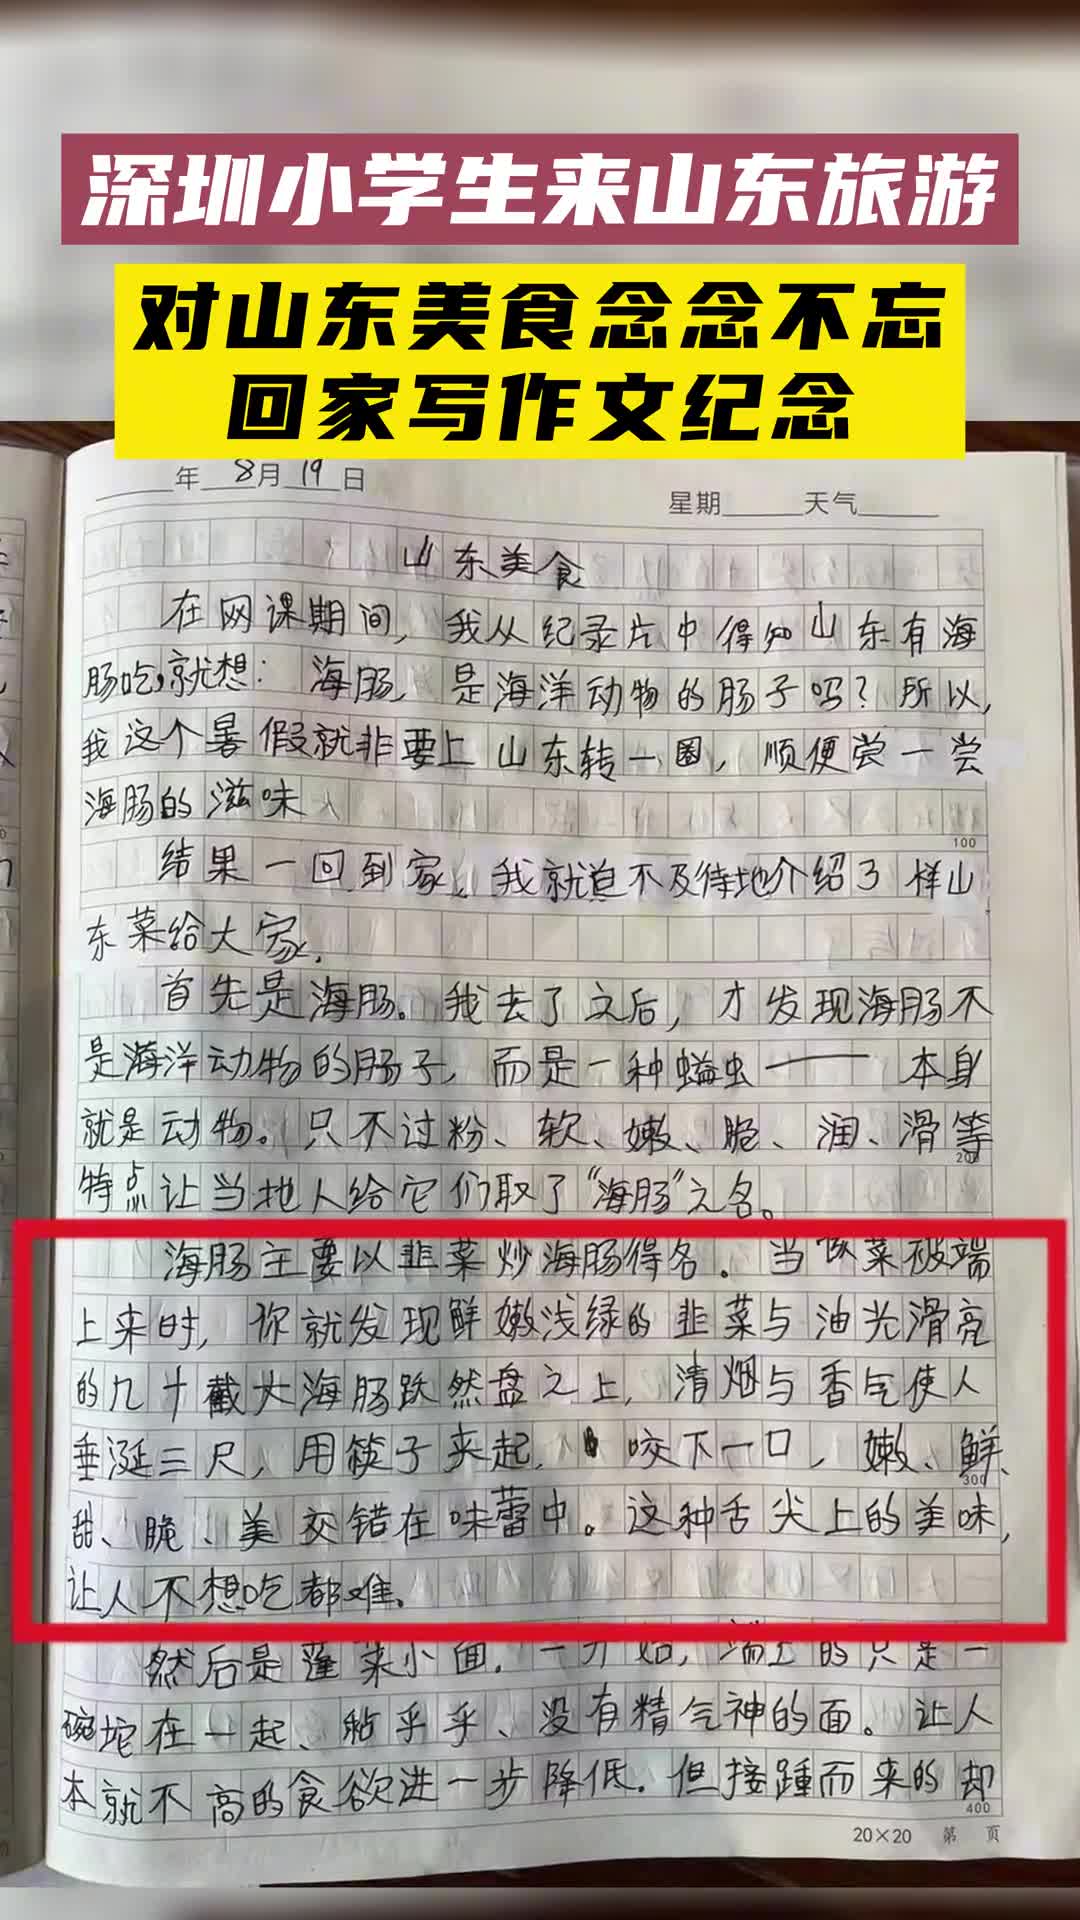 深圳小学生来山东旅游
对山东美食念念不忘
回家写作文纪念
年 8月 19 日
星期 天气
山东美食
在网课期间,我从纪录片中得知山东有海
肠吃,就想:海肠,是海洋动物的肠子吗?所以,
我这个暑假就非要上山东转一圈,顺便尝一尝
海肠的滋味
100
结果一回到家,我就迫不及待地介绍了样山
东菜给大家.
首先是海肠。我去了之后,才发现海肠不
是海洋动物的肠子,而是一种螠虫——本身
就是动物。只不过粉、软、嫩、脆、润、滑等
200
特点让当地人给它们取了“海肠”之名。
海肠主要以韭菜炒海肠得名。当做菜被端
上来时,你就发现鲜嫩浅绿的韭菜与油光滑亮
的几十截大海肠跃然盘之上,清烟与香气使人
垂涎三尺,用筷子夹起,咬下一口,嫩、鲜、
300
甜、脆、美交错在味蕾中。这种舌尖上的美味,
让人不想吃都难.
然后是蓬莱小面.一开始,端上的只是一
碗坨在一起、粘乎乎、没有精气神的面。让人
本就不高的食欲进一步降低.但接踵而来的却
400
20×20 第 页